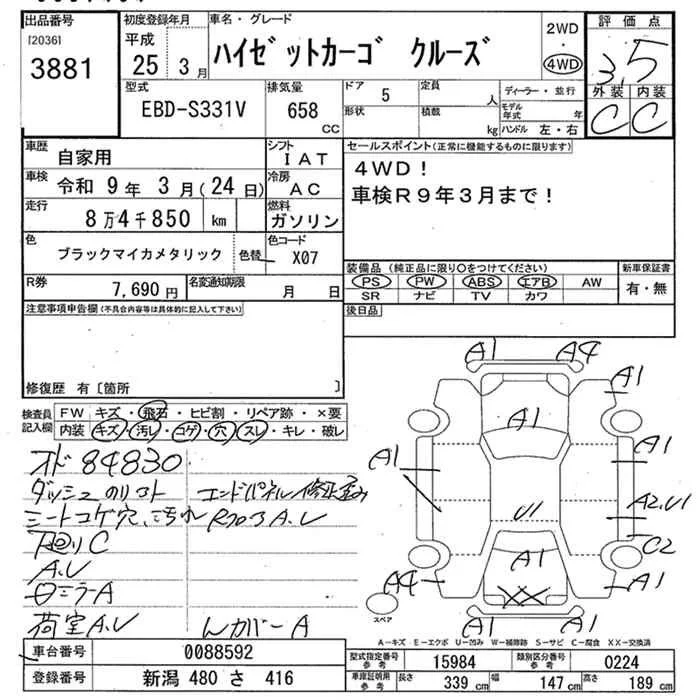 出品番号
[2036]
3881
初度登録年月
平成
25 3月
車名・グレード
ハイゼットカーゴ クルーズ
2WD
・
4WD
評価点
3.5
外装 内装
C C
型式
EBD-S331V
排気量
658
CC
ドア
5
定員
人
形状
積載
kg
ディーラー・並行
モデル
年式 年
ハンドル 左・右
車歴
自家用
シフト
IAT
車検
令和 9年 3月(24日)
冷房
AC
走行
8万4千850 km
燃料
ガソリン
色
ブラックマイカメタリック
色替
色コード
X07
R券
7,690円
名変通知期限
月 日
セールスポイント(正常に機能するものに限ります)
4WD!
車検R9年3月まで!
装備品(純正品に限り○をつけてください)
PS PW ABS エアB AW
SR ナビ TV カワ
新車保証書
有・無
後日品
注意事項申告欄(不具合内容等は具体的に記入して下さい)
修復歴 有〔箇所 〕
検査員
記入欄
FW キズ・飛石・ヒビ割・リペア跡・×要
内装 キズ・汚レ・コゲ・穴・スレ・キレ・破レ
オド 84830
ダッシュのリコト エンドパネル修正済み
シートコゲ穴、汚れ RフロアA.U
下廻りC
A.U
ロミラーA
荷室A.U
カバーA
A1 A4
A1
A1
A1
A1
A2.U1
U1
C2
A1
A4
XX
A1
A1 A1
スペア
A-キズ E-エクボ U-凹み W-補修跡 S-サビ C-腐食 XX-交換済
車台番号
0088592
登録番号
新潟 480 さ 416
型式指定番号
参考
15984
類別区分番号
参考
0224
車庫証明用
参考
長さ
339 cm
幅
147 cm
高さ
189 cm